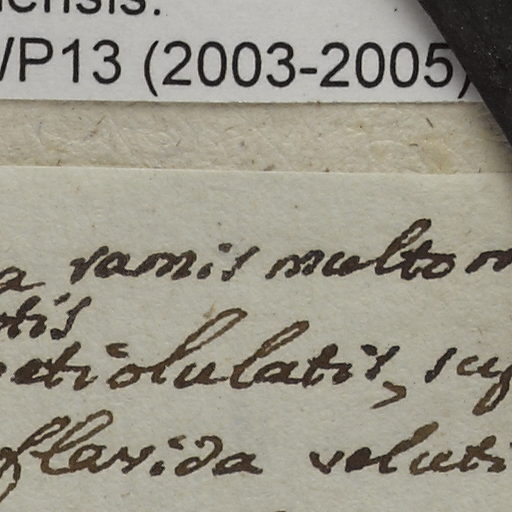 ensis.
WP13 (2003-2005)
a ramis multo m
tis
etiolulatis, su
flavida veluti